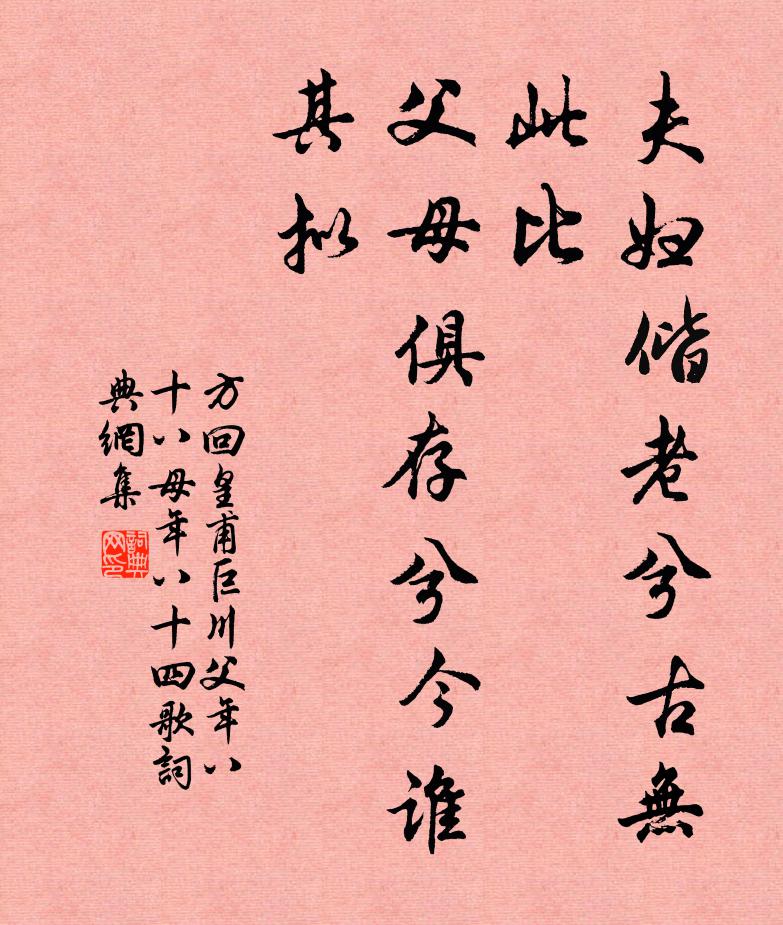 夫妇偕老兮古無
此比
父母俱存兮今誰
其拟
方回皇甫巨川父年八
十八母年八十四歌詞
典網集
詞典网印